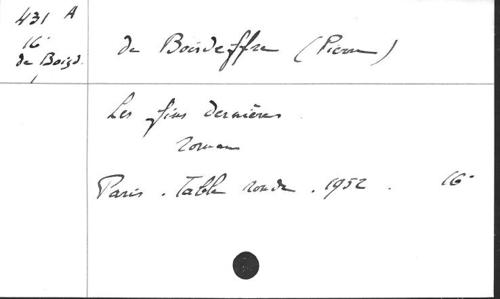 431 A
16°
de Boisd.
de Boisdeffre (Pierre)
Les fins dernières
roman
Paris. Table ronde. 1952. 16°